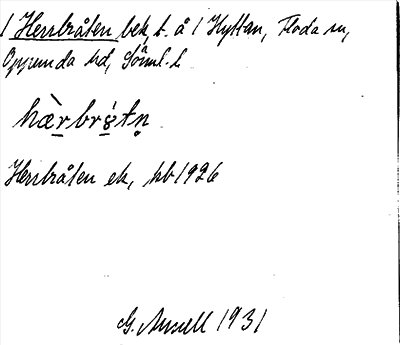 1 Herrbråten bek t. å 1 Hyttan, Floda sn,
Oppunda hd, Söml. l.
hærbrotn
Herrbråten ek, kb 1926
G. 1931